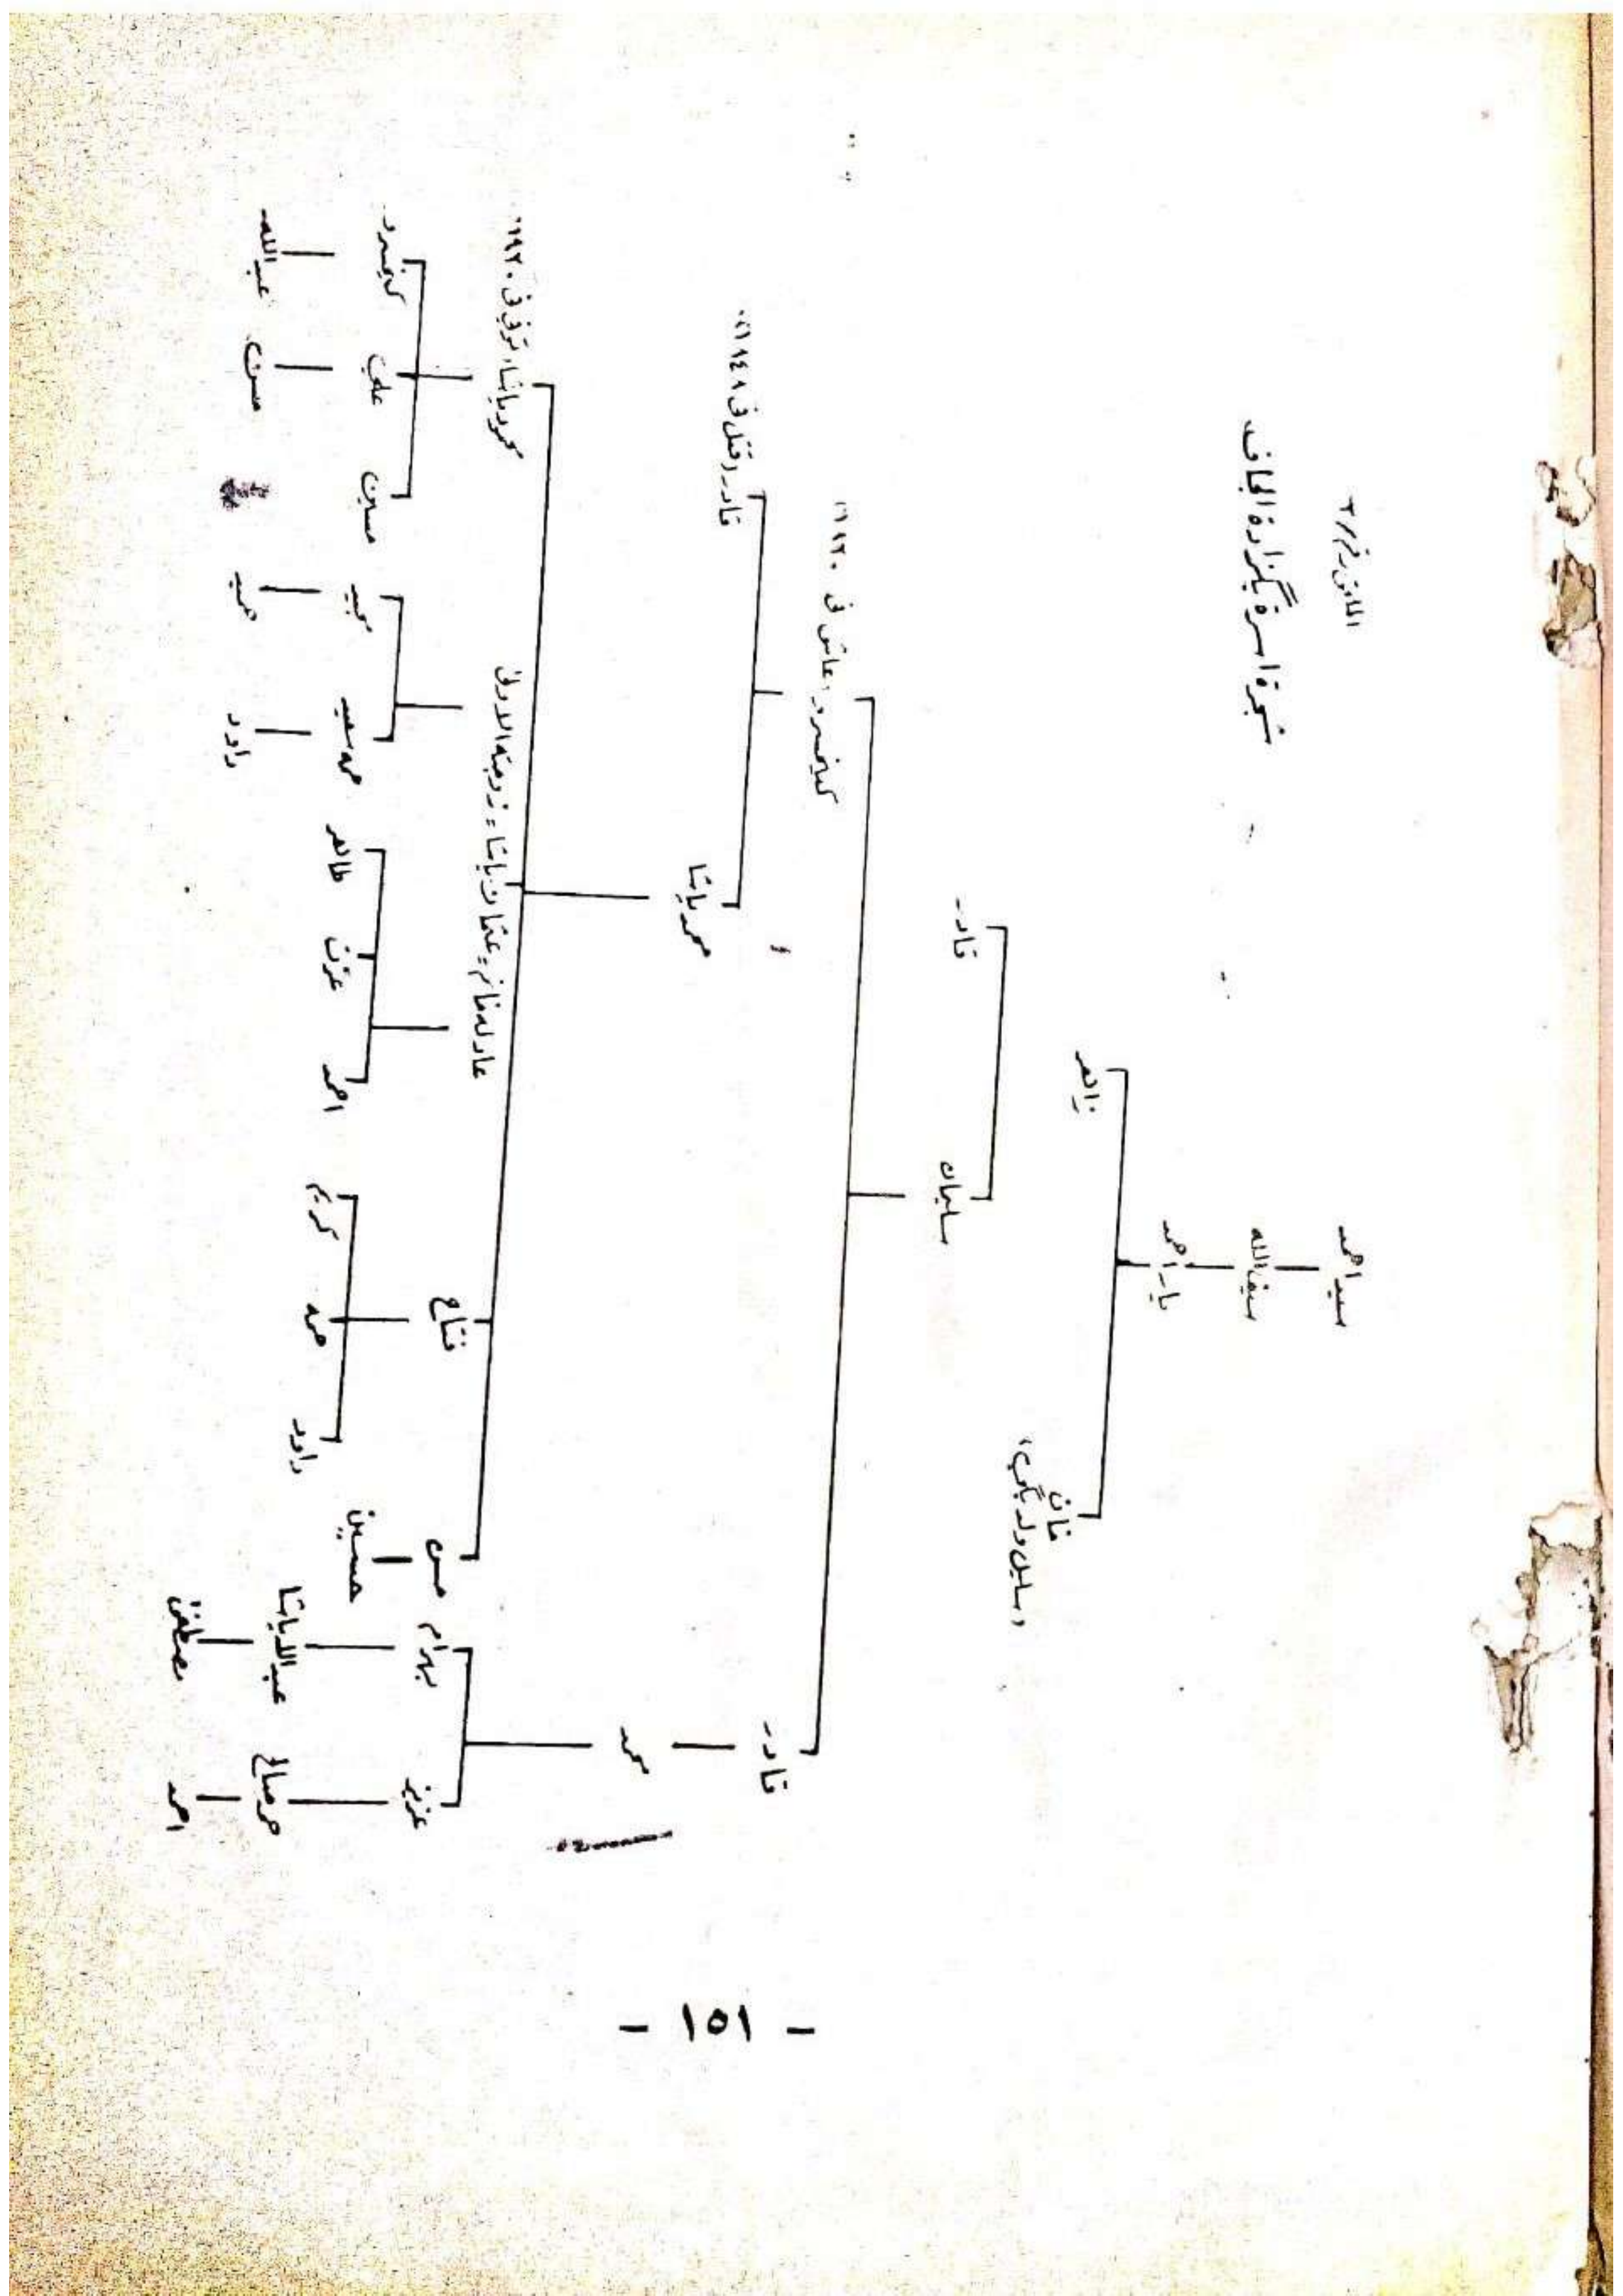 الملحق رقم ٣
شجرة اسرة بگزادة الجاف
سيد احمد
سيف الله
يار احمد
زاهر
خان
(سليل ولد بگي)
قادر
سليمان
كيخسرو (عاش في ١٩٢٠)
قادر
قادر (قتل في ١٨٤٨)
محمد پاشا
محمد
محمود پاشا (توفي في ١٩٢٠)
عادله خانم = عثمان پاشا = زوجته الاولى
فتاح
حسن
بهرام
عزيز
كيخسرو
علي
حسين
مجيد
حمه سعيد
طاهر
عزت
احمد
كريم
حمه
داود
حسين
عبدالله پاشا
حمه صالح
عبدالله
حسن
حميد
داود
مصطفى
احمد
- ١٥١ -